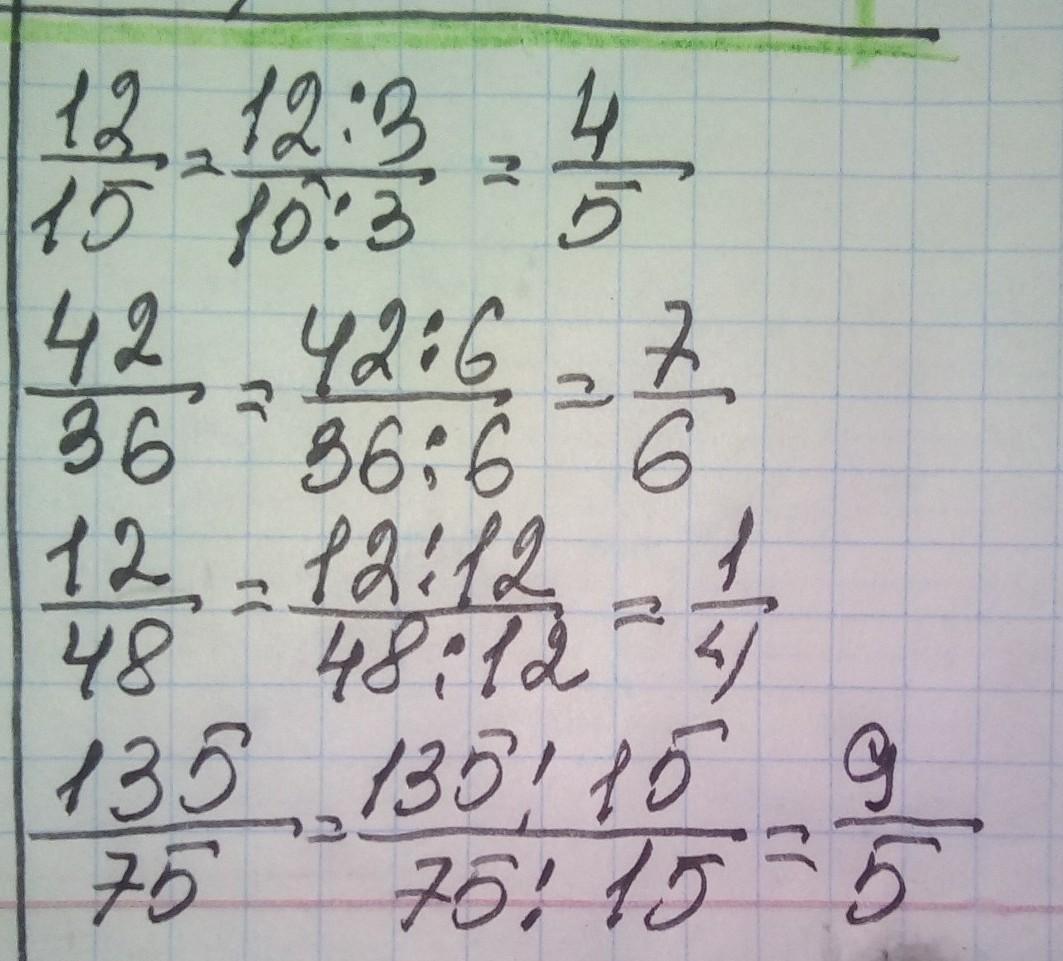 12/15 = 12:3/15:3 = 4/5
42/36 = 42:6/36:6 = 7/6
12/48 = 12:12/48:12 = 1/4
135/75 = 135:15/75:15 = 9/5